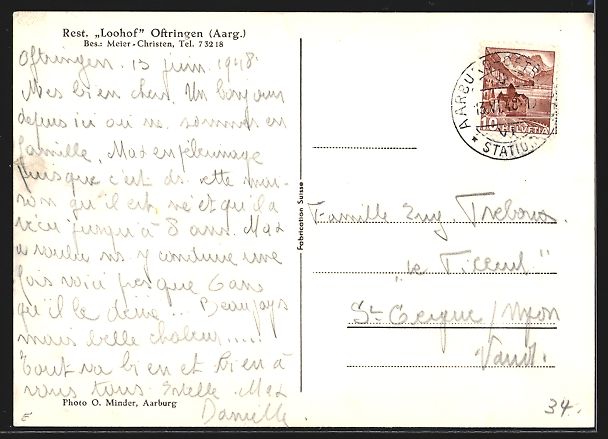 Rest. „Loohof" Oftringen (Aarg.)
Bes.: Meier-Christen, Tel. 7 32 18
Oftringen. 13 juin 1948.
Mes bien chers. Un bonjour
depuis ici où ns. sommes en
famille, Max en pélerinage
puisque c'est ds. cette mai-
son qu'il est né et qu'il a
vécu jusqu'à 8 ans. Max
a voulu ns. y conduire une
fois voici presque 6 ans
qu'il le désire... Beau pays
mais belle chaleur.....
Tout va bien et bien à
vous tous. Estelle Max
Danielle.
Photo O. Minder, Aarburg
Fabrication Suisse
AARBURG
13.VI.48
* STATION
HELVETIA
Famille Eug.
"le Tilleul"
St-Cergue/Nyon
Vaud.
34.